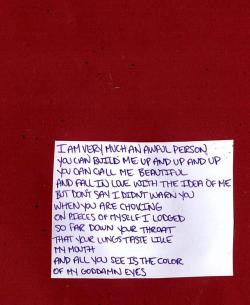 I AM VERY MUCH AN AWFUL PERSON,
YOU CAN BUILD ME UP AND UP AND UP
YOU CAN CALL ME BEAUTIFUL
AND FALL IN LOVE WITH THE IDEA OF ME
BUT DON'T SAY I DIDN'T WARN YOU
WHEN YOU ARE CHOKING
ON PIECES OF MYSELF I LODGED
SO FAR DOWN YOUR THROAT
THAT YOUR LUNGS TASTE LIKE
MY MOUTH
AND ALL YOU SEE IS THE COLOR
OF MY GODDAMN EYES